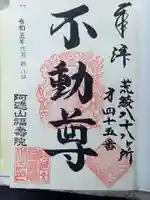 奉拝
荒綾八十八ヶ所
才四十五番
不動尊
令和五年六月廿八日
阿遮山福寿院